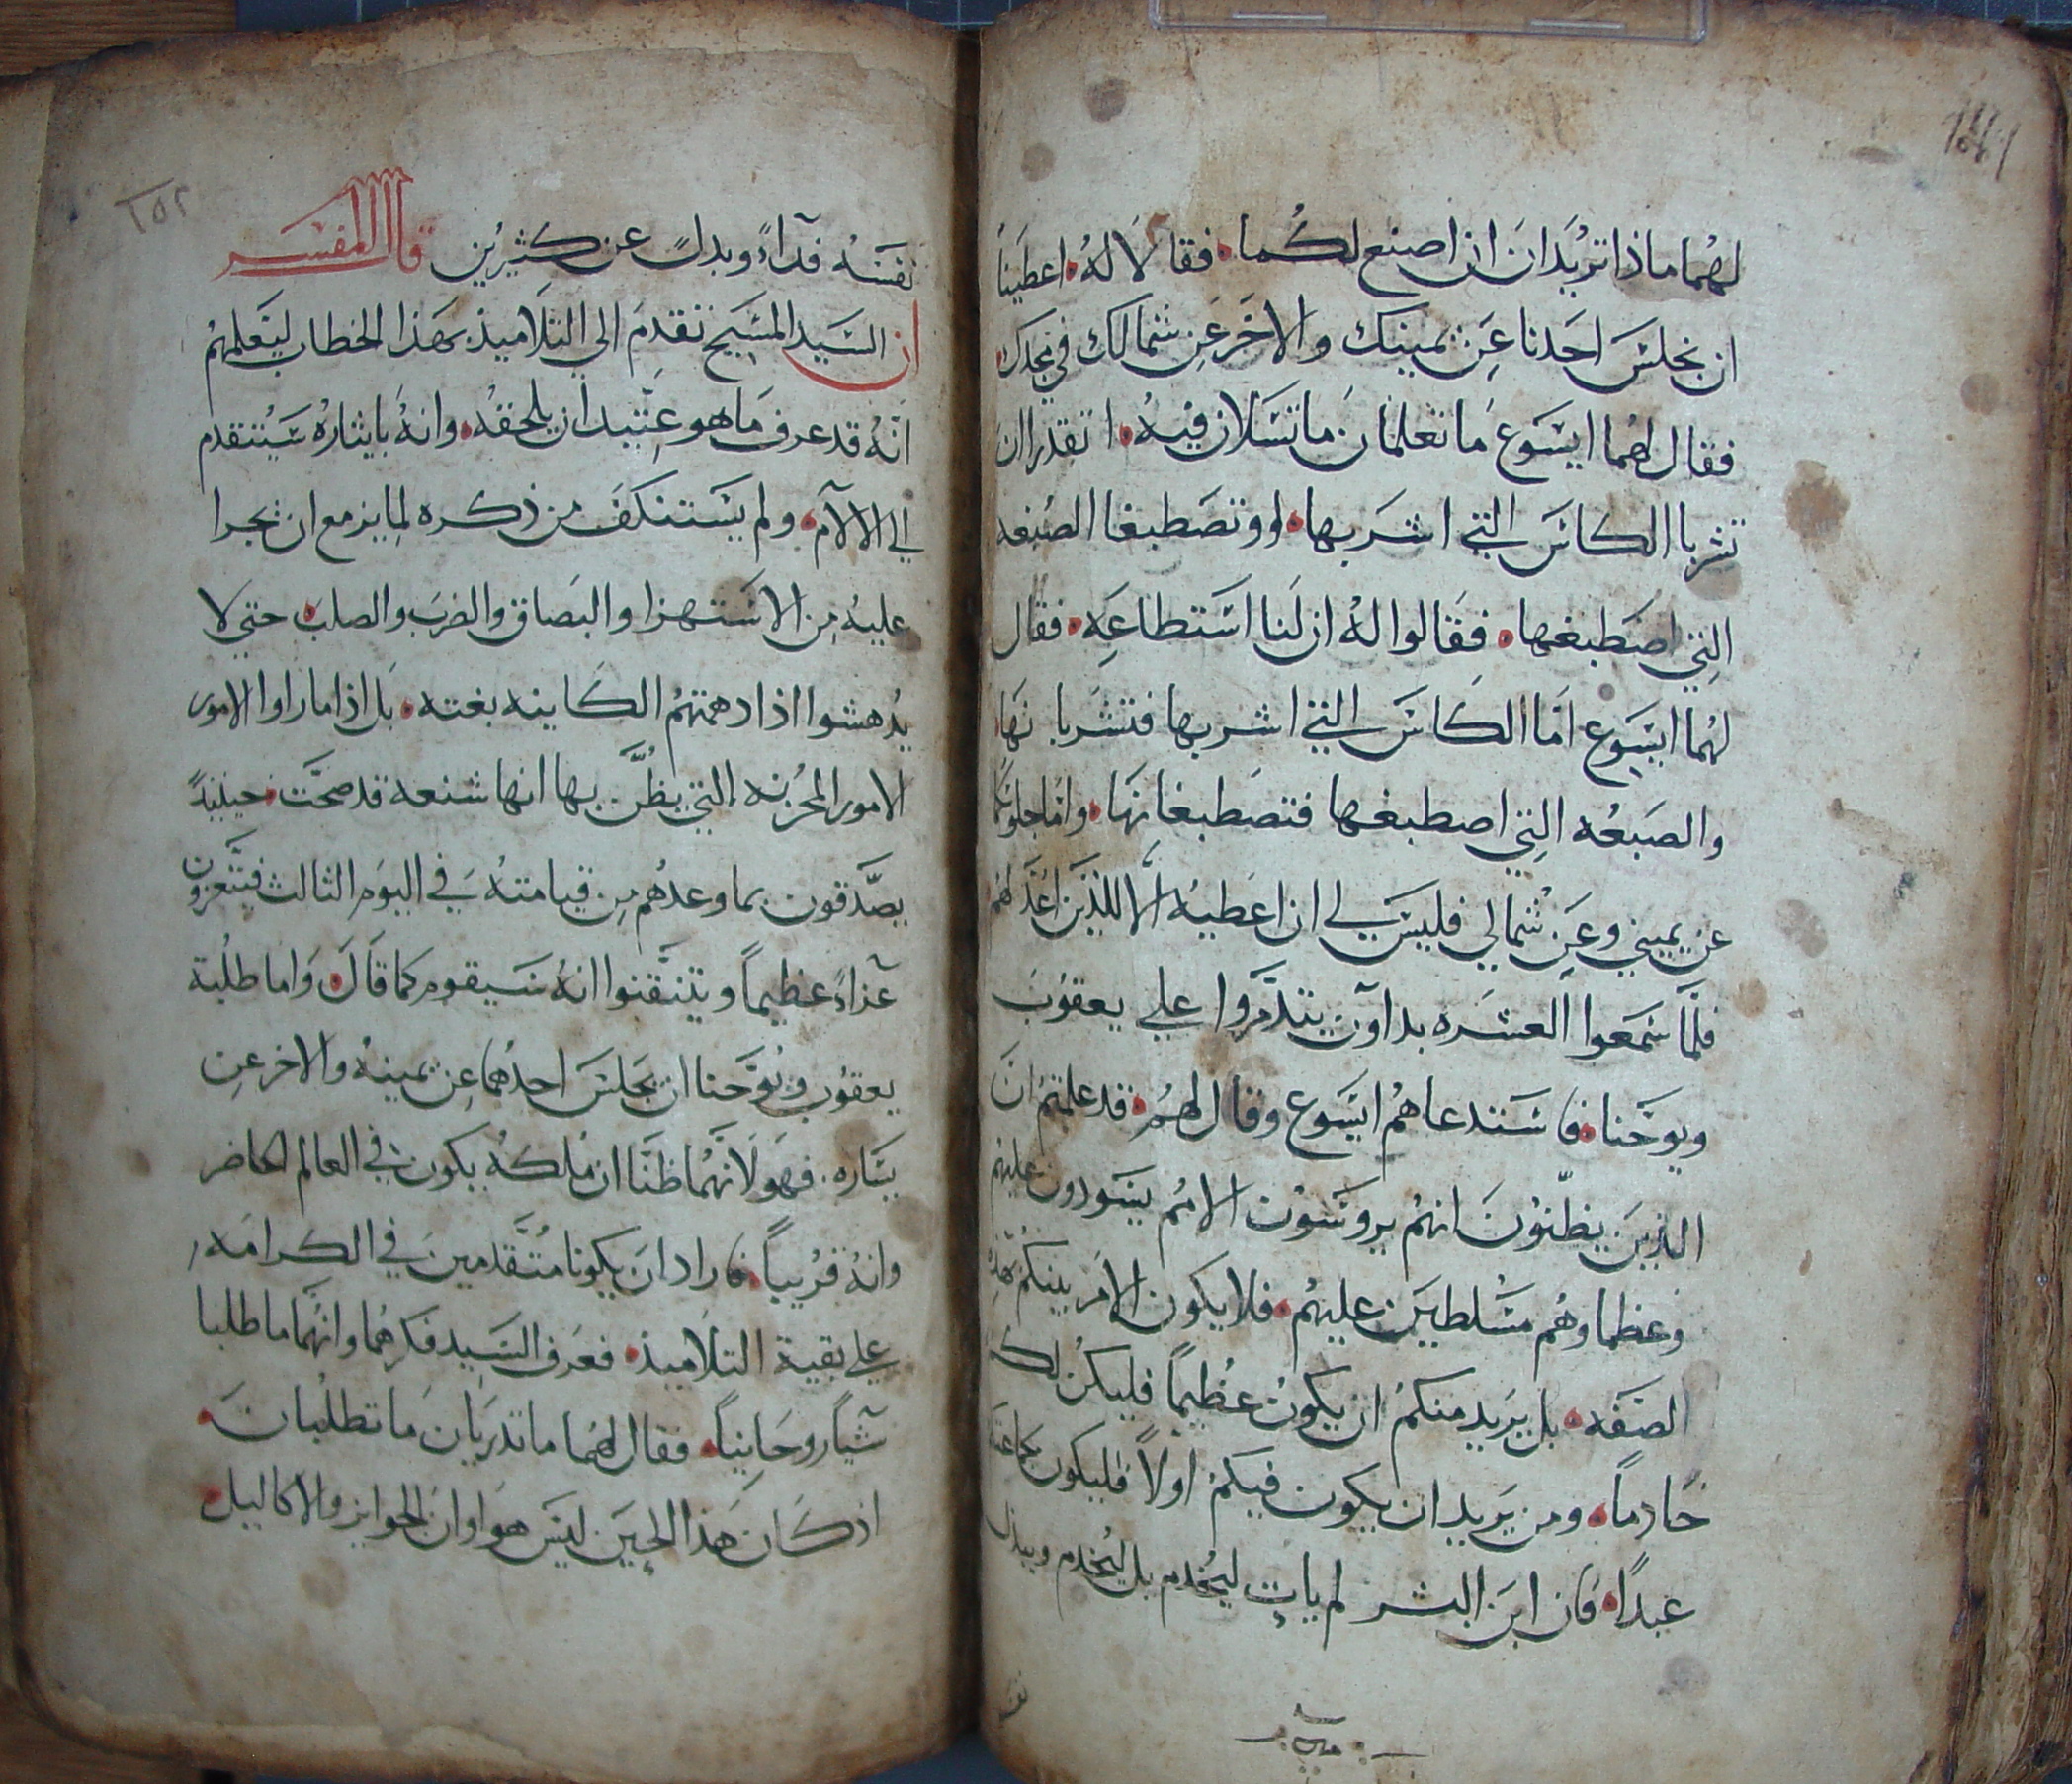 لهما ماذا تريدان ان اصنع لكما فقالا له اعطينا
ان نجلس احدنا عن يمينك والاخر عن شمالك في مجدك
فقال لهما ايسوع ما تعلمان ما تسلان فيه اتقدران
تشربا الكاس التي اشربها او وتصطبغا الصبغه
التي اصطبغها فقالوا له ان لنا استطاعه فقال
لهما ايسوع اما الكاس التي اشربها فتشربانها
والصبغه التي اصطبغها فتصطبغانها واما جلوسكما
عن يميني وعن شمالي فليس لي ان اعطيه الا للذين اعد لهم
فلما سمعوا العشره بداون يتذمروا علي يعقوب
ويوحنا فاستدعاهم ايسوع وقال لهم قد علمتم ان
الذين يظنون انهم يروسون الامم يسودون عليهم
وعظماوهم مسلطين عليهم فلا يكون الامر بينكم هذه
الصفه بل يريد منكم ان يكون عظيما فليكن لكم
خادما ومن يريد ان يكون فيكم اولا فليكون لجماعته
عبدا فان ابن البشر لم يات ليخدم بل ليخدم ويبذل
نفسه
٢٥٢
نفسه فدآء وبدلا عن كثيرين قال المفسر
ان السيد المسيح تقدم الي التلاميذ بهذا الخطاب ليعلمهم
انه قد عرف ما هو عتيد ان يلحقه وانه بايثاره سيتقدم
الي الالآم ولم يستنكف من ذكره لما يزمع ان يجرا
عليه من الاستهزا والبصاق والضرب والصلب حتي لا
يدهشوا اذا دهمتهم الكاينه بغته بل اذا ما راوا الامور
الامور المحزنه التي يظن بها انها شنعه قد صحت حينيذ
يصدقون بما وعدهم من قيامته في اليوم الثالث فيتعزون
عزآء عظيما ويتيقنوا انه سيقوم كما قال واما طلبة
يعقوب ويوحنا ان يجلس احدهما عن يمينه والاخر عن
يساره فهو لانهما ظنا ان ملكه يكون في العالم الحاضر
وانه قريبا فارادا ان يكونا متقدمين في الكرامه
علي بقية التلاميذ فعرف السيد فكرهما وانهما ما طلبا
شيا روحانيا فقال لهما ما تدريان ما تطلبان
اذ كان هذا الحين ليس هو اوان الجوايز والاكاليل